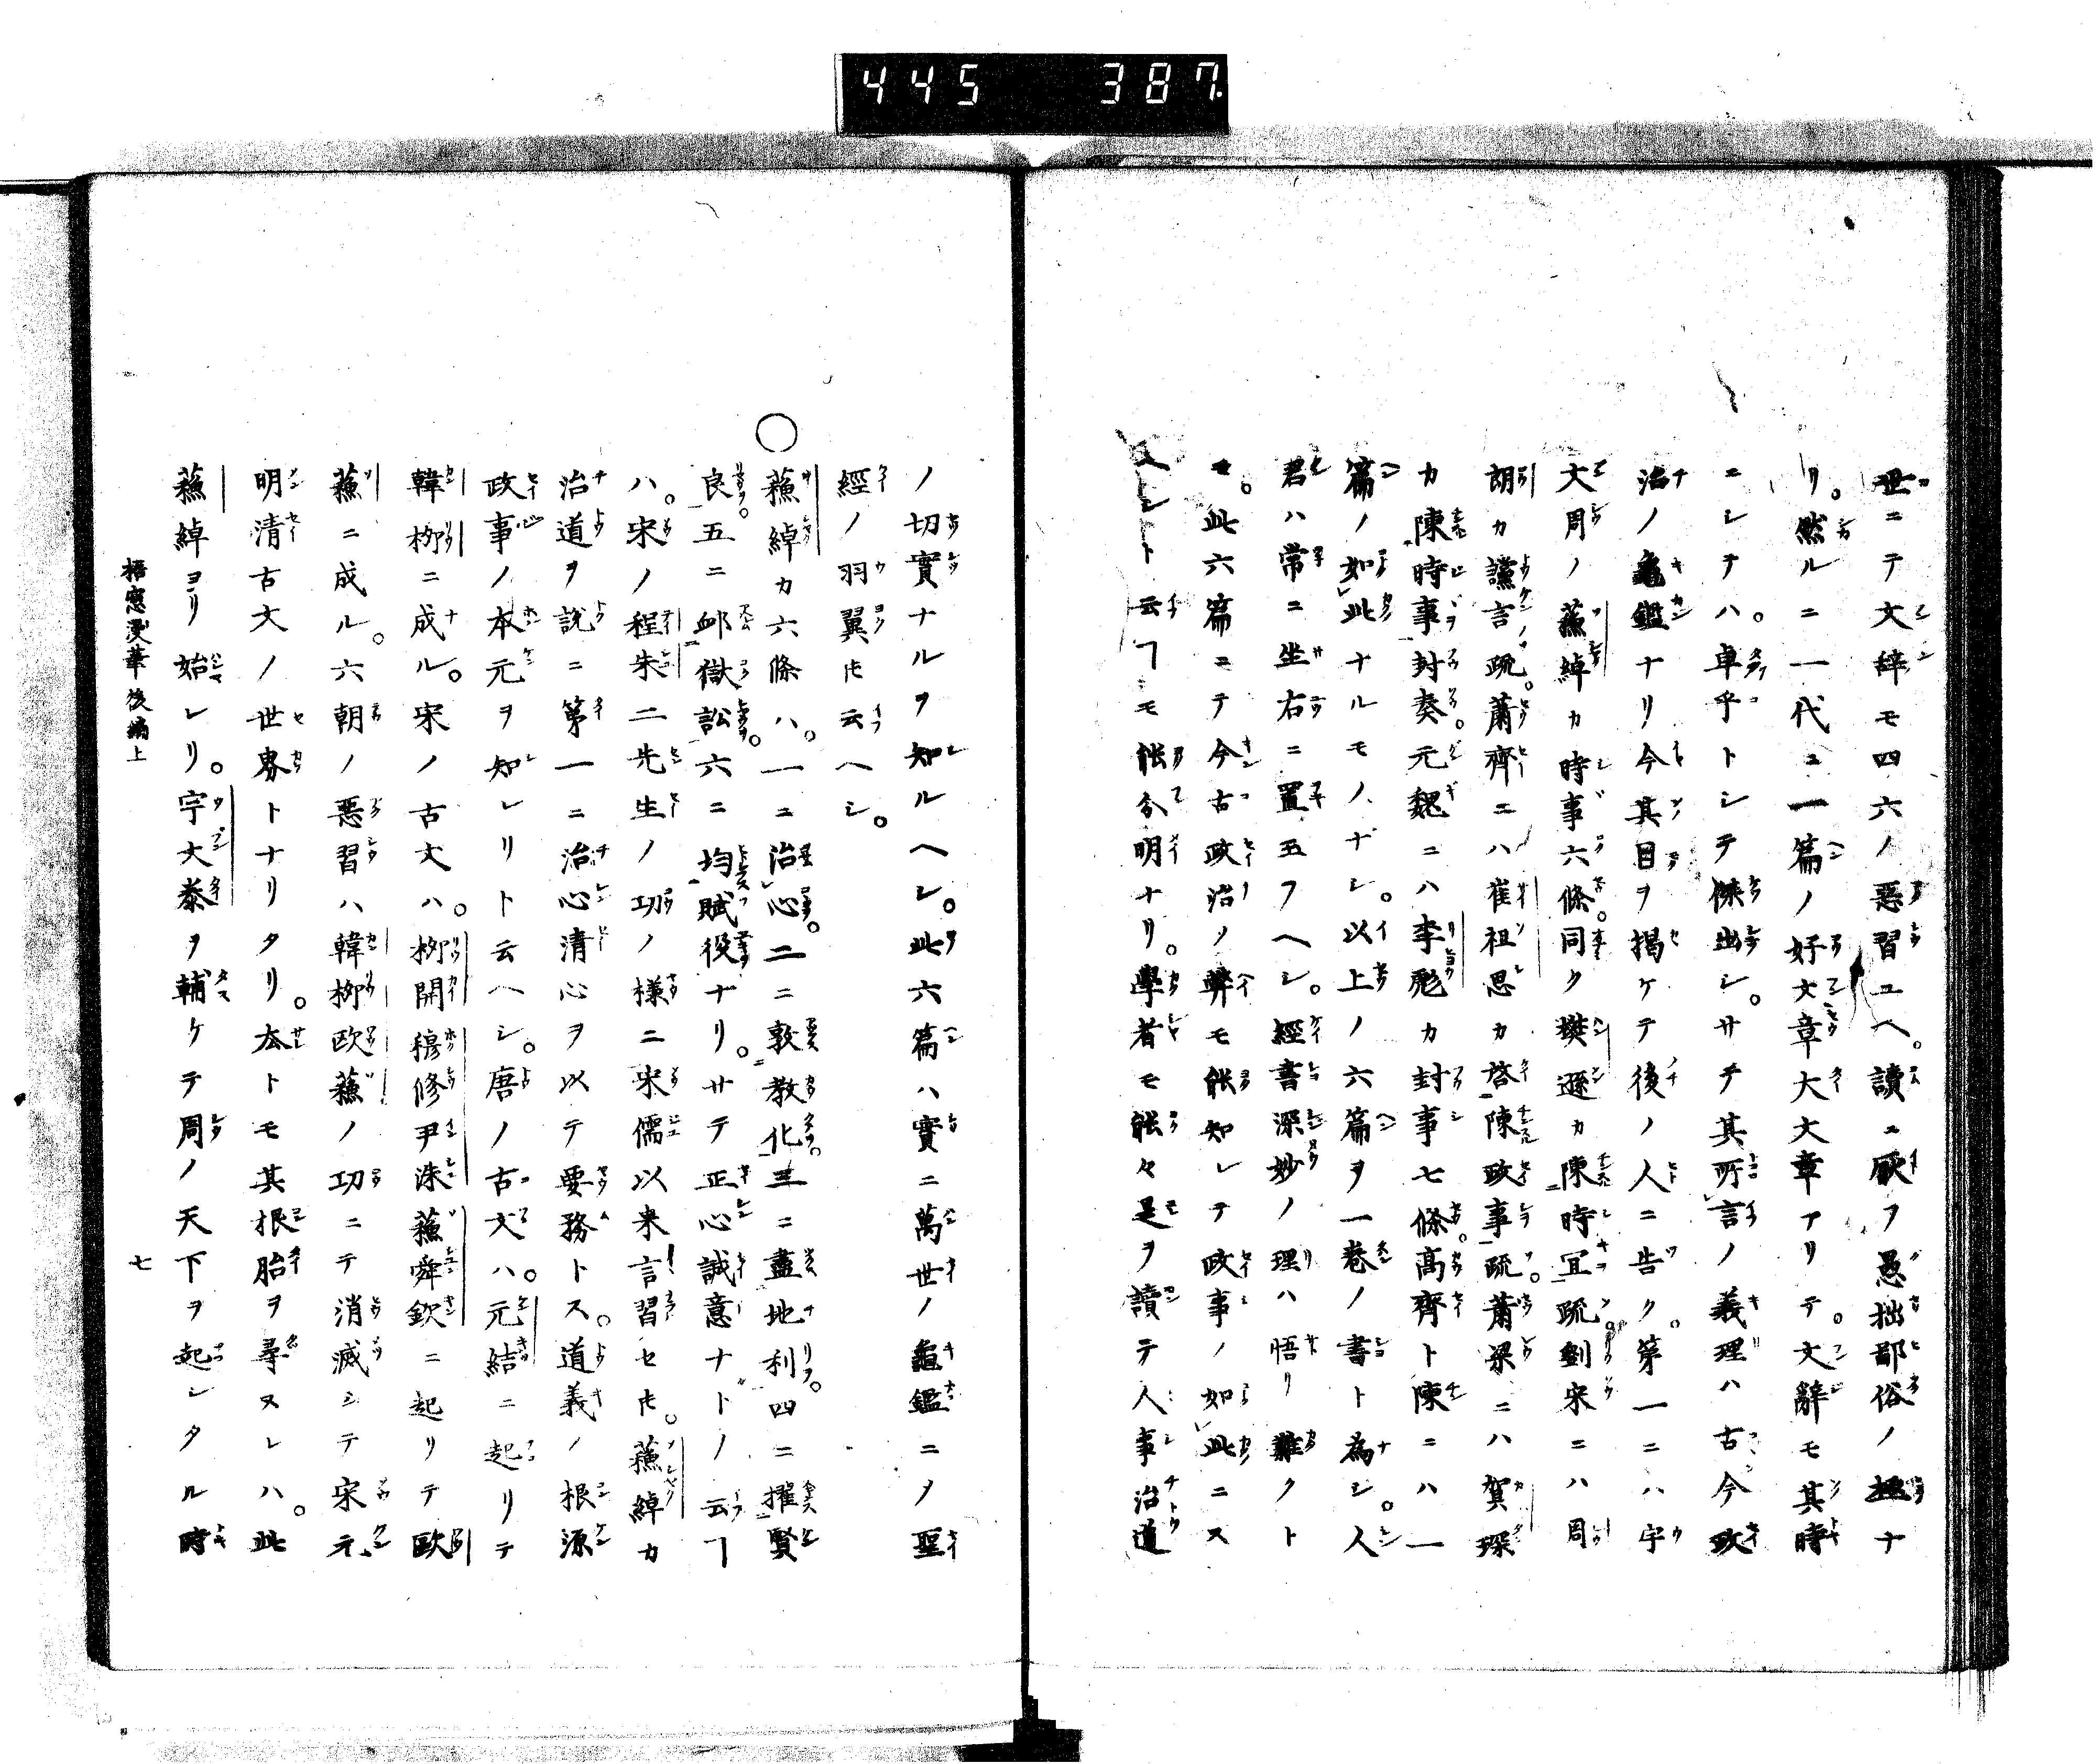 445 387.
世ニテ文辞モ四六ノ惡習ユヘ。讀ニ厭フ愚拙鄙俗ノ極ナ
リ。然ルニ一代ニ一篇ノ好文章大文章アリテ。文辭モ其時
ニシテハ。卓乎トシテ傑出シ。サテ其所言ノ義理ハ古今政
治ノ龜鑑ナリ今其目ヲ揭ケテ後ノ人ニ告ク。第一ニハ宇
文周ノ蘓綽カ時事六條。同ク樊遜カ陳時宜疏。劉宋ニハ周
朗カ讜言疏。蕭齊ニハ崔祖思カ啓陳政事疏。蕭梁ニハ賀琛
カ陳時事封奏。元魏ニハ李彪カ封事七條。髙齊ト陳ニハ一
篇ノ如此ナルモノナシ。以上ノ六篇ヲ一卷ノ書ト為シ。人
君ハ常ニ坐右ニ置玉フヘシ。經書深妙ノ理ハ悟リ難クト
モ。此六篇ニテ今古政治ノ弊モ能知レテ政事ノ如此ニス
ヘシト云ヿモ能分明ナリ。學者モ能々是ヲ讀テ人事治道
ノ切實ナルヲ知ルヘシ。此六篇ハ實ニ萬世ノ龜鑑ニノ聖
經ノ羽翼𪜈云ヘシ。
〇蘓綽カ六條ハ。一ニ治心。二ニ敦教化。三ニ盡地利。四ニ擢賢
良。五ニ䘏獄訟。六ニ均賦役ナリ。サテ正心誠意ナドノ云ヿ
ハ。宋ノ程朱二先生ノ功ノ様ニ宋儒以来言習セ𪜈。蘓綽カ
治道ヲ說ニ第一ニ治心清心ヲ以テ要務トス。道義ノ根源
政事ノ本元ヲ知レリト云ヘシ。唐ノ古文ハ。元結ニ起リテ
韓栁ニ成ル。宋ノ古文ハ。栁開穆修尹洙蘓舜欽ニ起リテ歐
蘓ニ成ル。六朝ノ惡習ハ韓栁歐蘓ノ功ニテ消滅シテ宋元
明清古文ノ世界トナリタリ。夶トモ其根胎ヲ尋ヌレハ。此
蘓綽ヨリ始レリ。宇文泰ヲ輔ケテ周ノ天下ヲ起シタル時
梧窓漫筆後編上 七